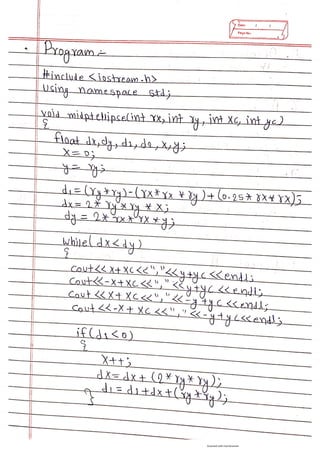 Program :-
#include <iostream.h>
Using namespace std;
void midptellipse(int rx, int ry, int xc, int yc)
{
float dx, dy, d1, d2, x, y;
x = 0;
y = ry;
d1 = (ry * ry) - (rx * rx * ry) + (0.25 * rx * rx);
dx = 2 * ry * ry * x;
dy = 2 * rx * rx * y;
while(dx < dy)
{
cout<< x + xc <<","<< y + yc <<endl;
cout<< -x + xc <<","<< y + yc <<endl;
cout<< x + xc <<","<< -y + yc <<endl;
cout<< -x + xc <<","<< -y + yc <<endl;
if (d1 < 0)
{
x++;
dx = dx + (2 * ry * ry);
d1 = d1 + dx + (ry * ry);
}